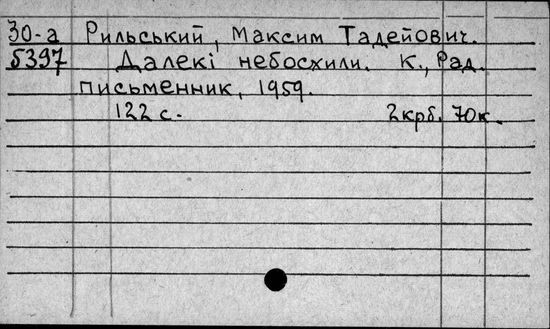 30-а Рильський, Максим Тадейович.
5397 Далекі небосхили. К., Рад.
письменник, 1959.
122 с. 2крб. 70к.